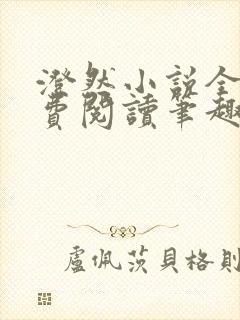 澄然小说全
費閱讀筆趣
盧佩茨貝格則